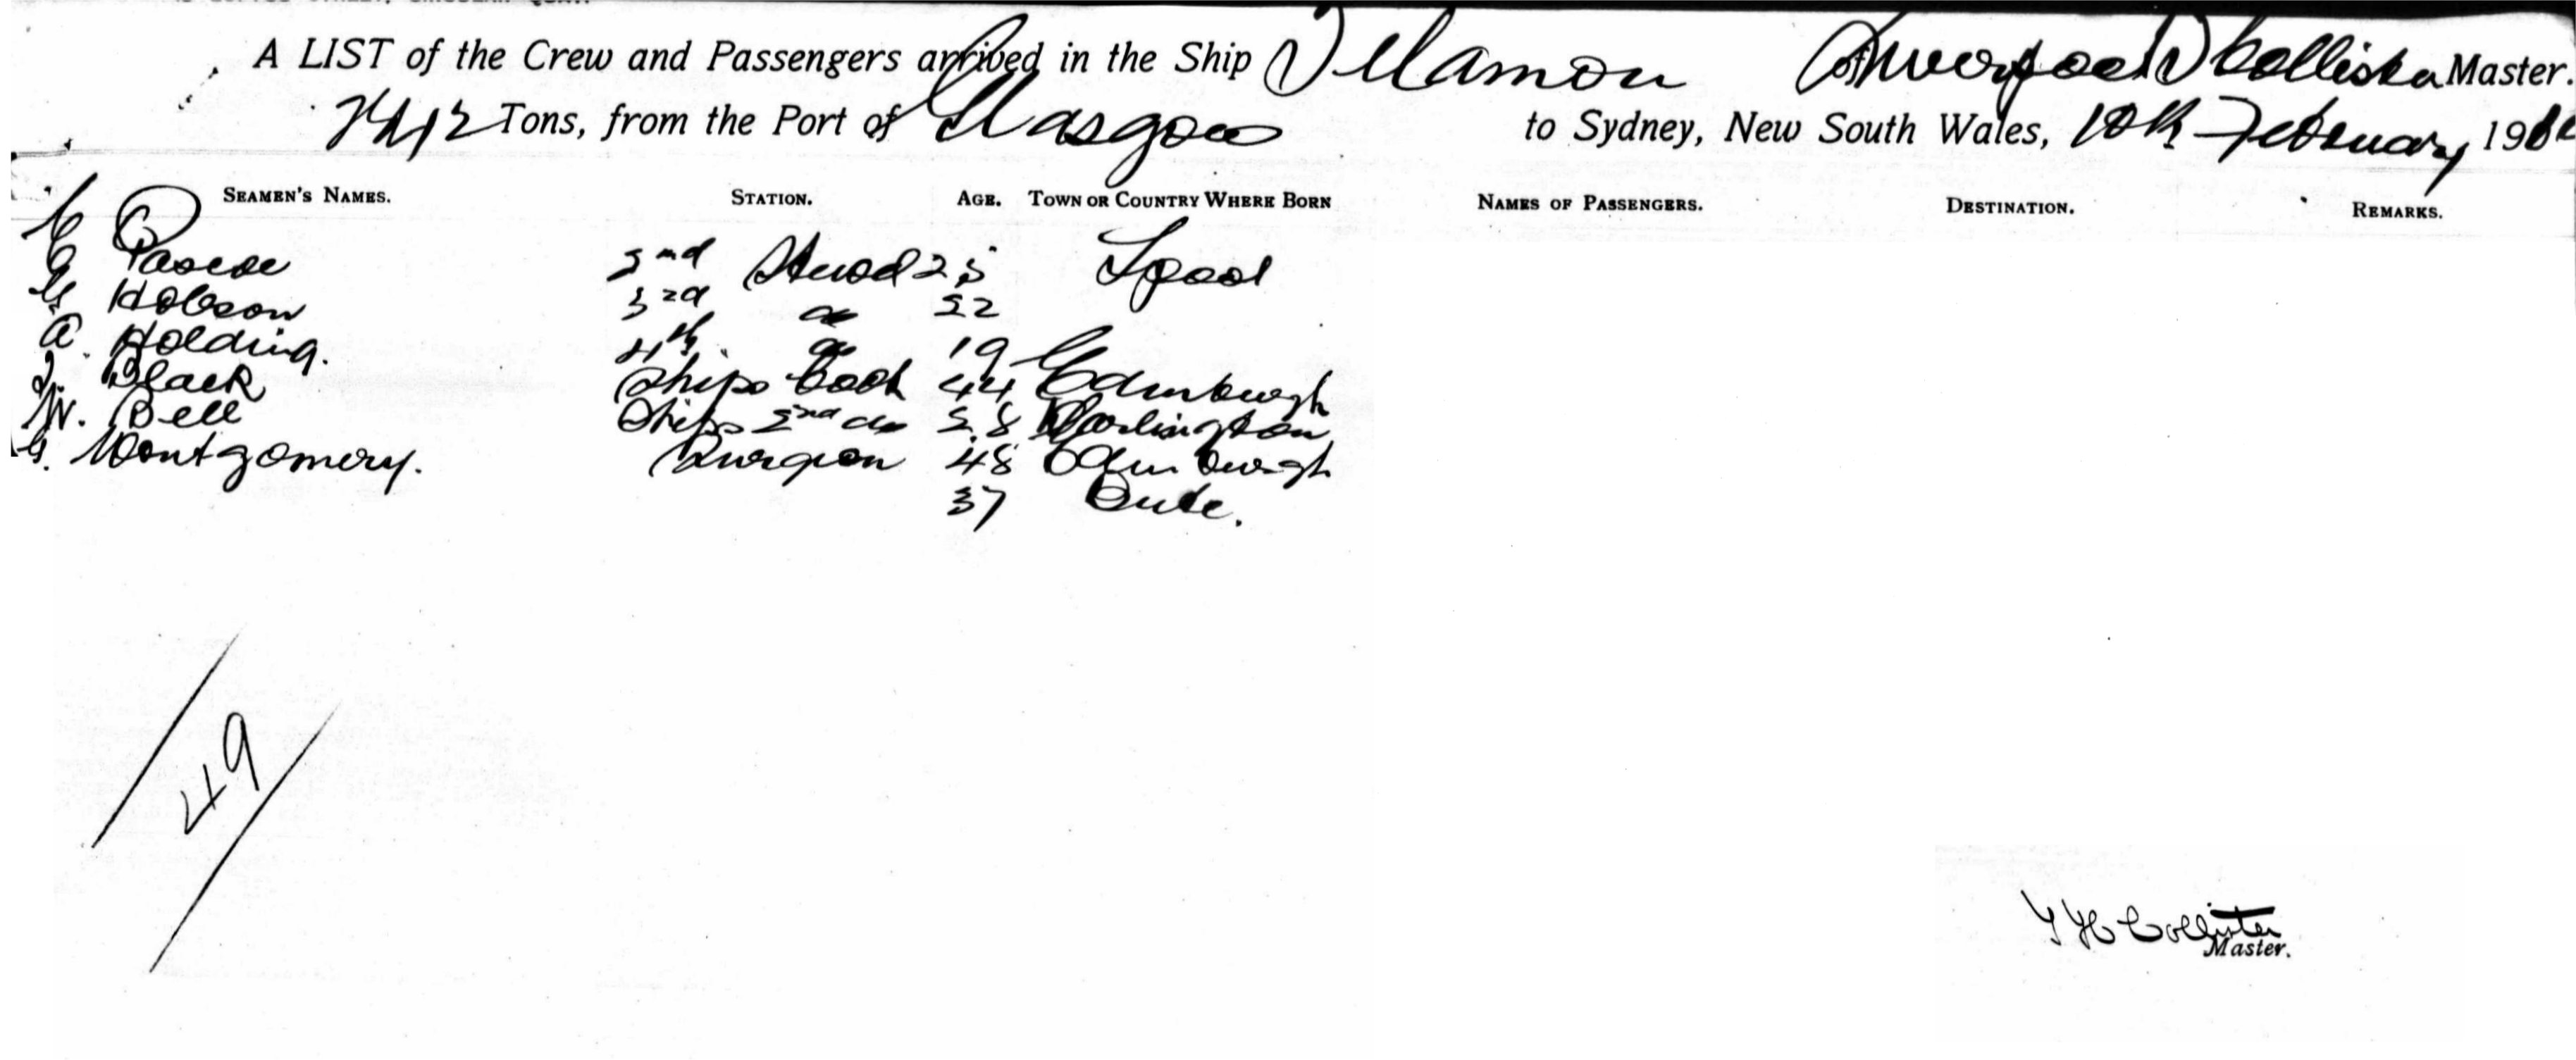 A LIST of the Crew and Passengers arrived in the Ship Telamon of Liverpool Collister Master.
Tons, from the Port of Glasgow to Sydney, New South Wales, 10th February 191
SEAMEN'S NAMES. STATION. AGE. TOWN OR COUNTRY WHERE BORN NAMES OF PASSENGERS. DESTINATION. REMARKS.
C Pascoe 2nd Stwd 25 L'pool
G Hobson 3rd do 22
A. Holding. 4th do 19
J. Black Ships Cook 44 Edinburgh
W. Bell Ships 2nd do 28 Darlington
G. Montgomery. Surgeon 48 Edinburgh
37 Bute.
49
T H Collister
Master.